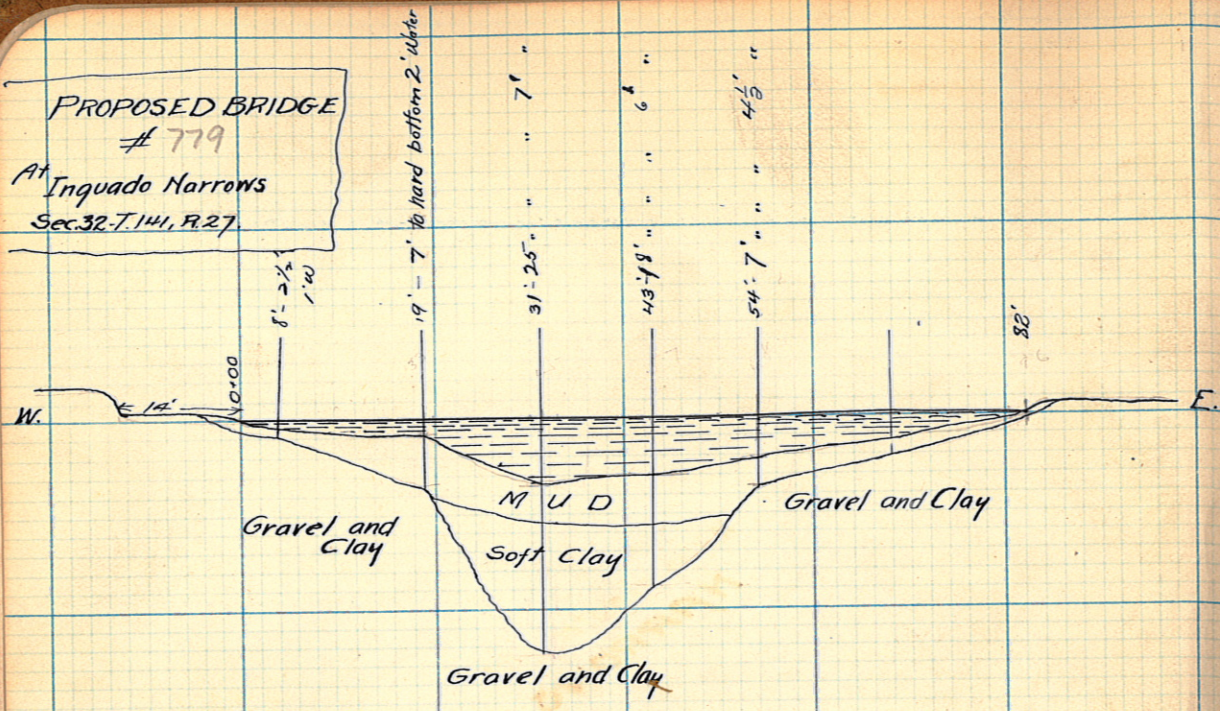 PROPOSED BRIDGE
# 779
At Inguado Narrows
Sec. 32-T. 141, R. 27.
8' - 2½'
1' W
19' - 7' to hard bottom 2' Water
31' - 25' " " " 7' "
43' - 18' " " " 6' "
54' - 7' " " " 4½' "
82'
0+00
14'
W.
E.
MUD
Gravel and Clay
Gravel and
Clay
Soft Clay
Gravel and Clay